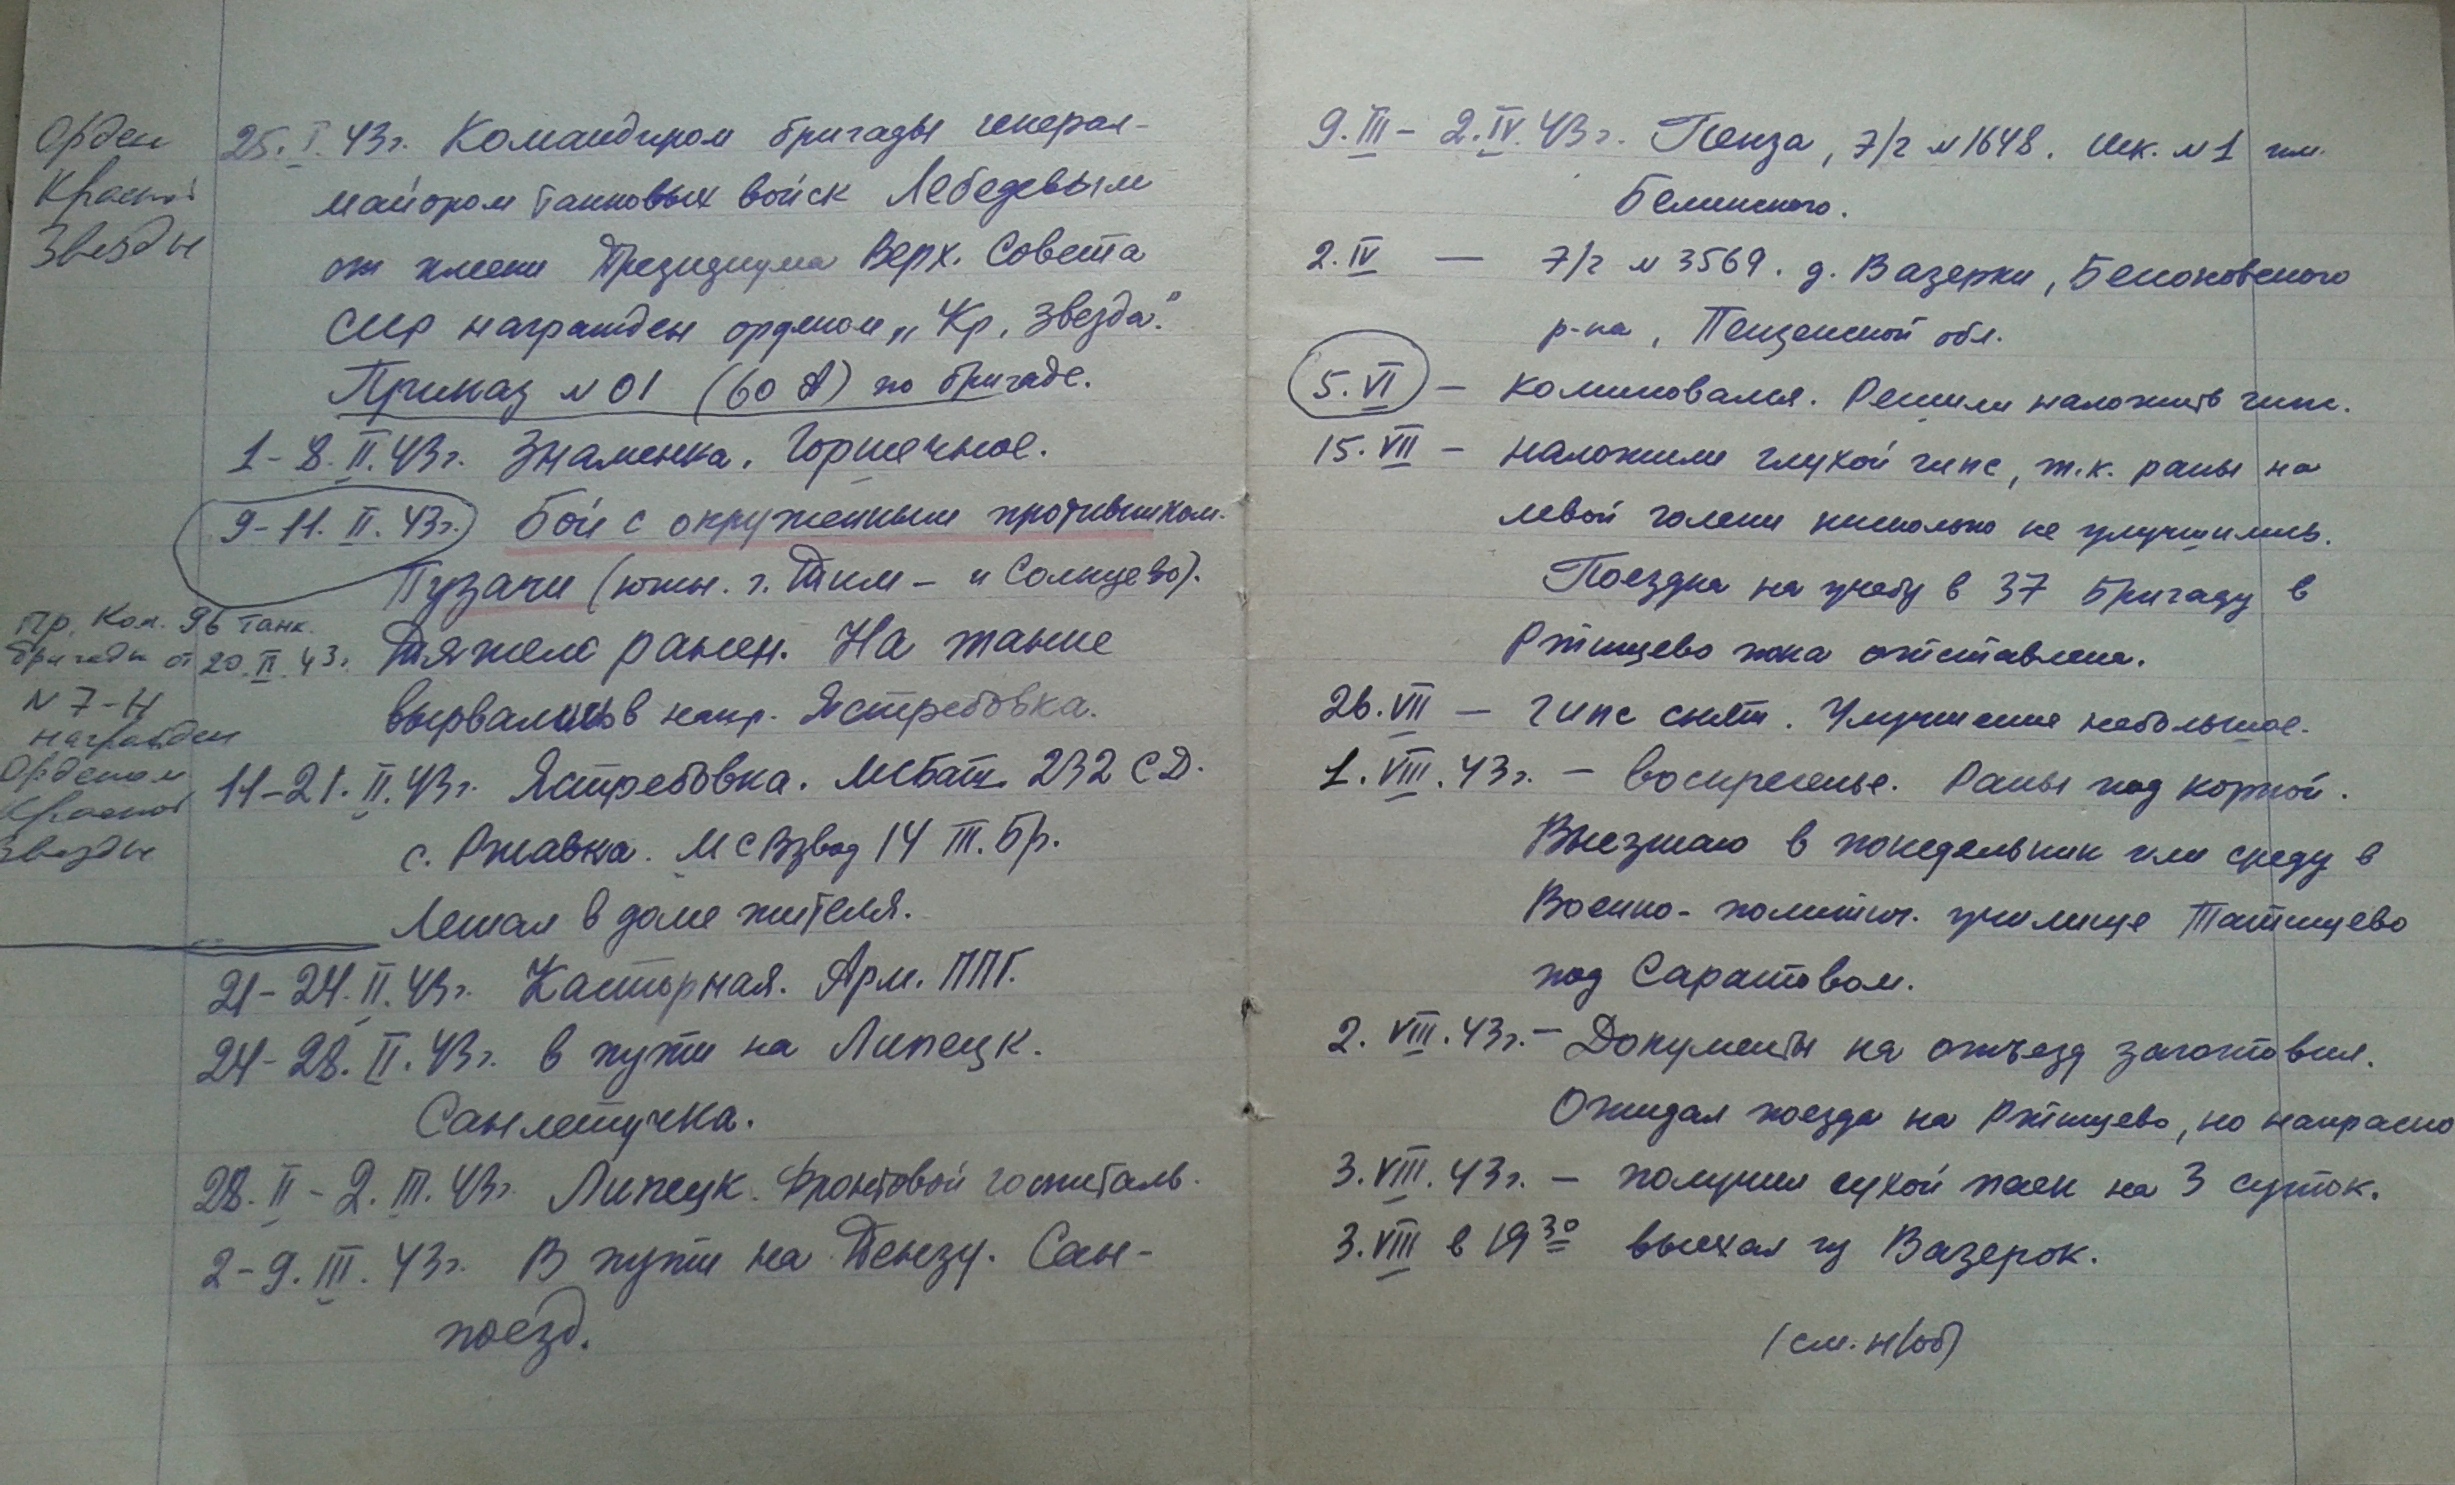 Орден
Красной
Звезды
25.I.43г. Командиром бригады генерал-
майором танковых войск Лебедевым
от имени Президиума Верх. Совета
СССР награжден орденом „Кр. Звезда."
Приказ №01 (60 А) по бригаде.
1-8.II.43г. Знаменка. Горшечное.
9-11.II.43г. Бой с окруженным противником.
Пузачи (южн. г. Тим - и Солнцево).
Тяжело ранен. На танке
вырвались в напр. Ястребовка.
Пр. Ком. 96 танк.
бригады от 20.II.43г.
№ 7-Н
награжден
Орденом
Красной
Звезды
11-21.II.43г. Ястребовка. МСБат. 232 СД.
с. Ржавка. МСВзвод 14 III. Бр.
Лежал в доме жителя.
21-24.II.43г. Касторная. Арм. ППГ.
24-28.II.43г. в пути на Липецк.
Санлетучка.
28.II-2.III.43г. Липецк. Фронтовой госпиталь.
2-9.III.43г. В пути на Пензу. Сан-
поезд.
9.III-2.IV.43г. Пенза, э/г №1648. Шк. №1 им.
Белинского.
2.IV — э/г №3569. д. Вазерки, Бессоновского
р-на, Пензенской обл.
5.VI - комиссовался. Решили наложить гипс.
15.VII - наложили глухой гипс, т.к. раны на
левой голени нисколько не улучшились.
Поездка на учебу в 37 бригаду в
Ртищево пока отставлена.
26.VII — гипс снят. Улучшение небольшое.
1.VIII.43г. — воскресенье. Раны под коркой.
Выезжаю в понедельник или среду в
Военно-политич. училище Татищево
под Саратовом.
2.VIII.43г. — Документы на отъезд заготовил.
Ожидал поезда на Ртищево, но напрасно
3.VIII.43г. — получил сухой паек на 3 суток.
3.VIII в 19³⁰ выехал из Вазерок.
(см. н/об)